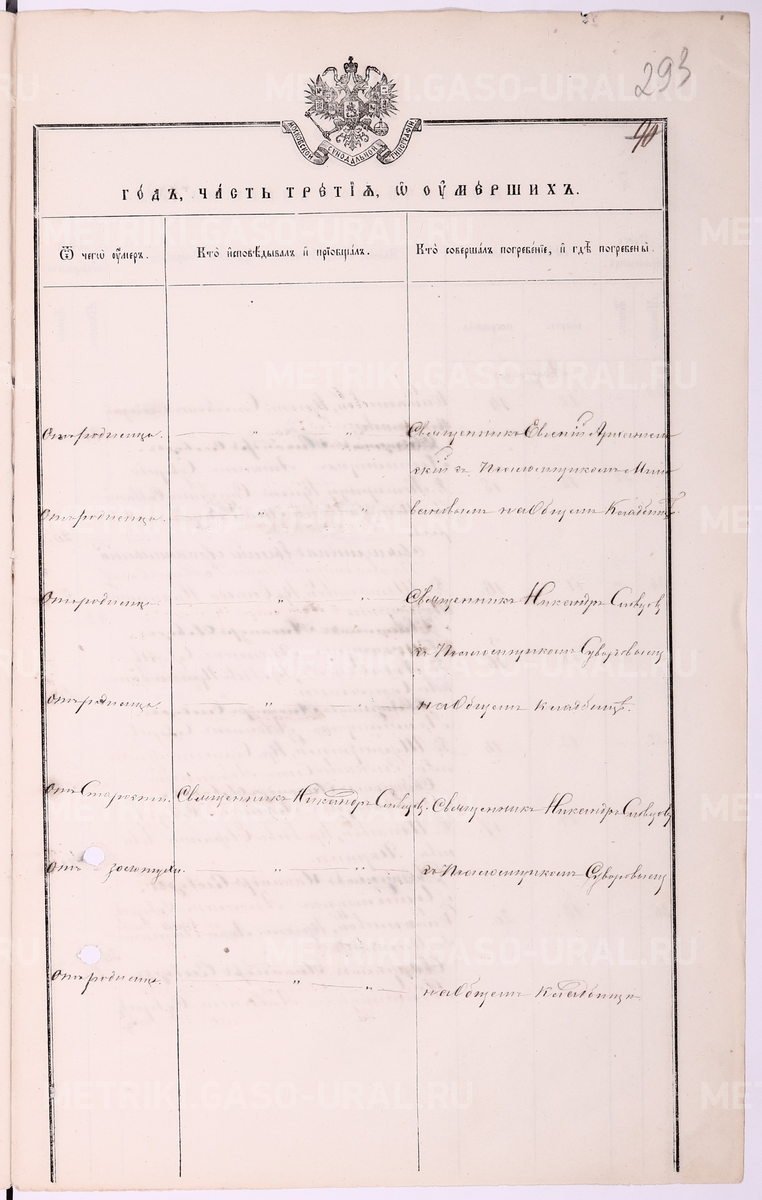 293
40
МОСКОВСКОЙ СѴНОДАЛЬНОЙ ТИПОГРАФІИ
го́дъ, ча́сть тре́тїѧ, ѡ҆ ᲂу҆ме́ршихъ.
Ѿ чегѡ̀ ᲂу҆́меръ. Кто̀ и҆сповѣ́дывалъ и҆ прїѡбща́лъ. Кто̀ соверша́лъ погребе́нїе, и҆ гдѣ̀ погребены̀.
Отъ родимца. " " Священникъ Евгеній
скій съ Псаломщикомъ
Отъ родимца. " " на Общемъ Кладбищѣ.
Отъ родимца. " " Священникъ Никандръ Словцовъ
съ Псаломщикомъ Суворовымъ
Отъ родимца. " " на Общемъ кладбищѣ.
Отъ Старости. Священникъ Никандръ Словцовъ. Священникъ Никандръ Словцовъ
Отъ золотухи. " " съ Псаломщикомъ Суворовымъ
Отъ родимца. " " на Общемъ Кладбище
METRIKI.GASO-URAL.RU